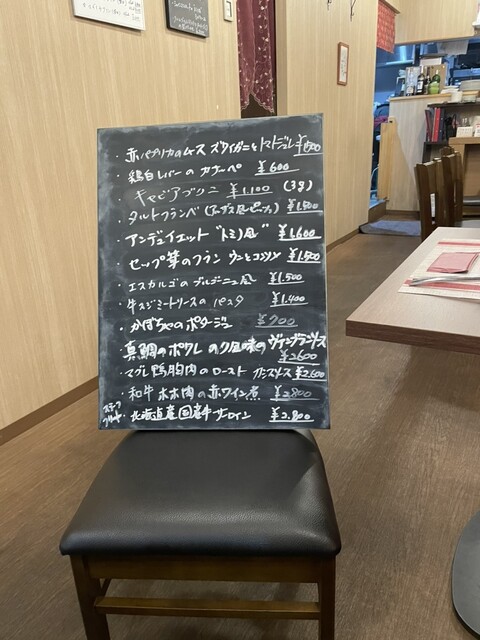 ・赤パプリカのムース ズワイガニとトマトジュレ
・鶏白レバーのカナッペ ¥600
・キャビアブリニ ¥1,100 (3g)
・タルトフランベ (アルザス風ピッツァ) ¥1,500
・アンデュイエット "トミノ風" ¥1,600
・セップ茸のフラン ウニとコンソメ ¥1,500
・エスカルゴのブルゴーニュ風 ¥1,500
・牛スジミートソースのパスタ ¥1,400
・かぼちゃのポタージュ ¥700
・真鯛のポワレ のり風味のヴァンブランソース
¥2600
・マグレ鴨胸肉のロースト ¥2,600
・和牛ホホ肉の赤ワイン煮 ¥2,800
ステーク
フリット ・北海道産国産牛サーロイン ¥2,800